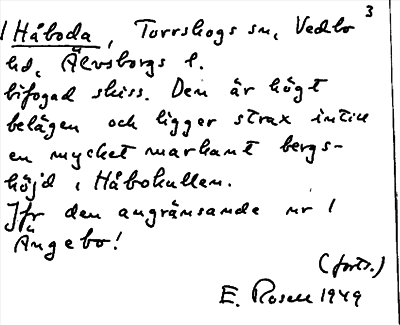 3
Håboda, Torrskogs sn, Vedbo
hd, Älvsborgs l.
bifogad skiss. Den är högt
belägen och ligger strax intill
en mycket markant bergs-
höjd, Håbokullen.
Jfr den angränsande nr 1
Ängebo!
(forts.)
E. Rosell 1949